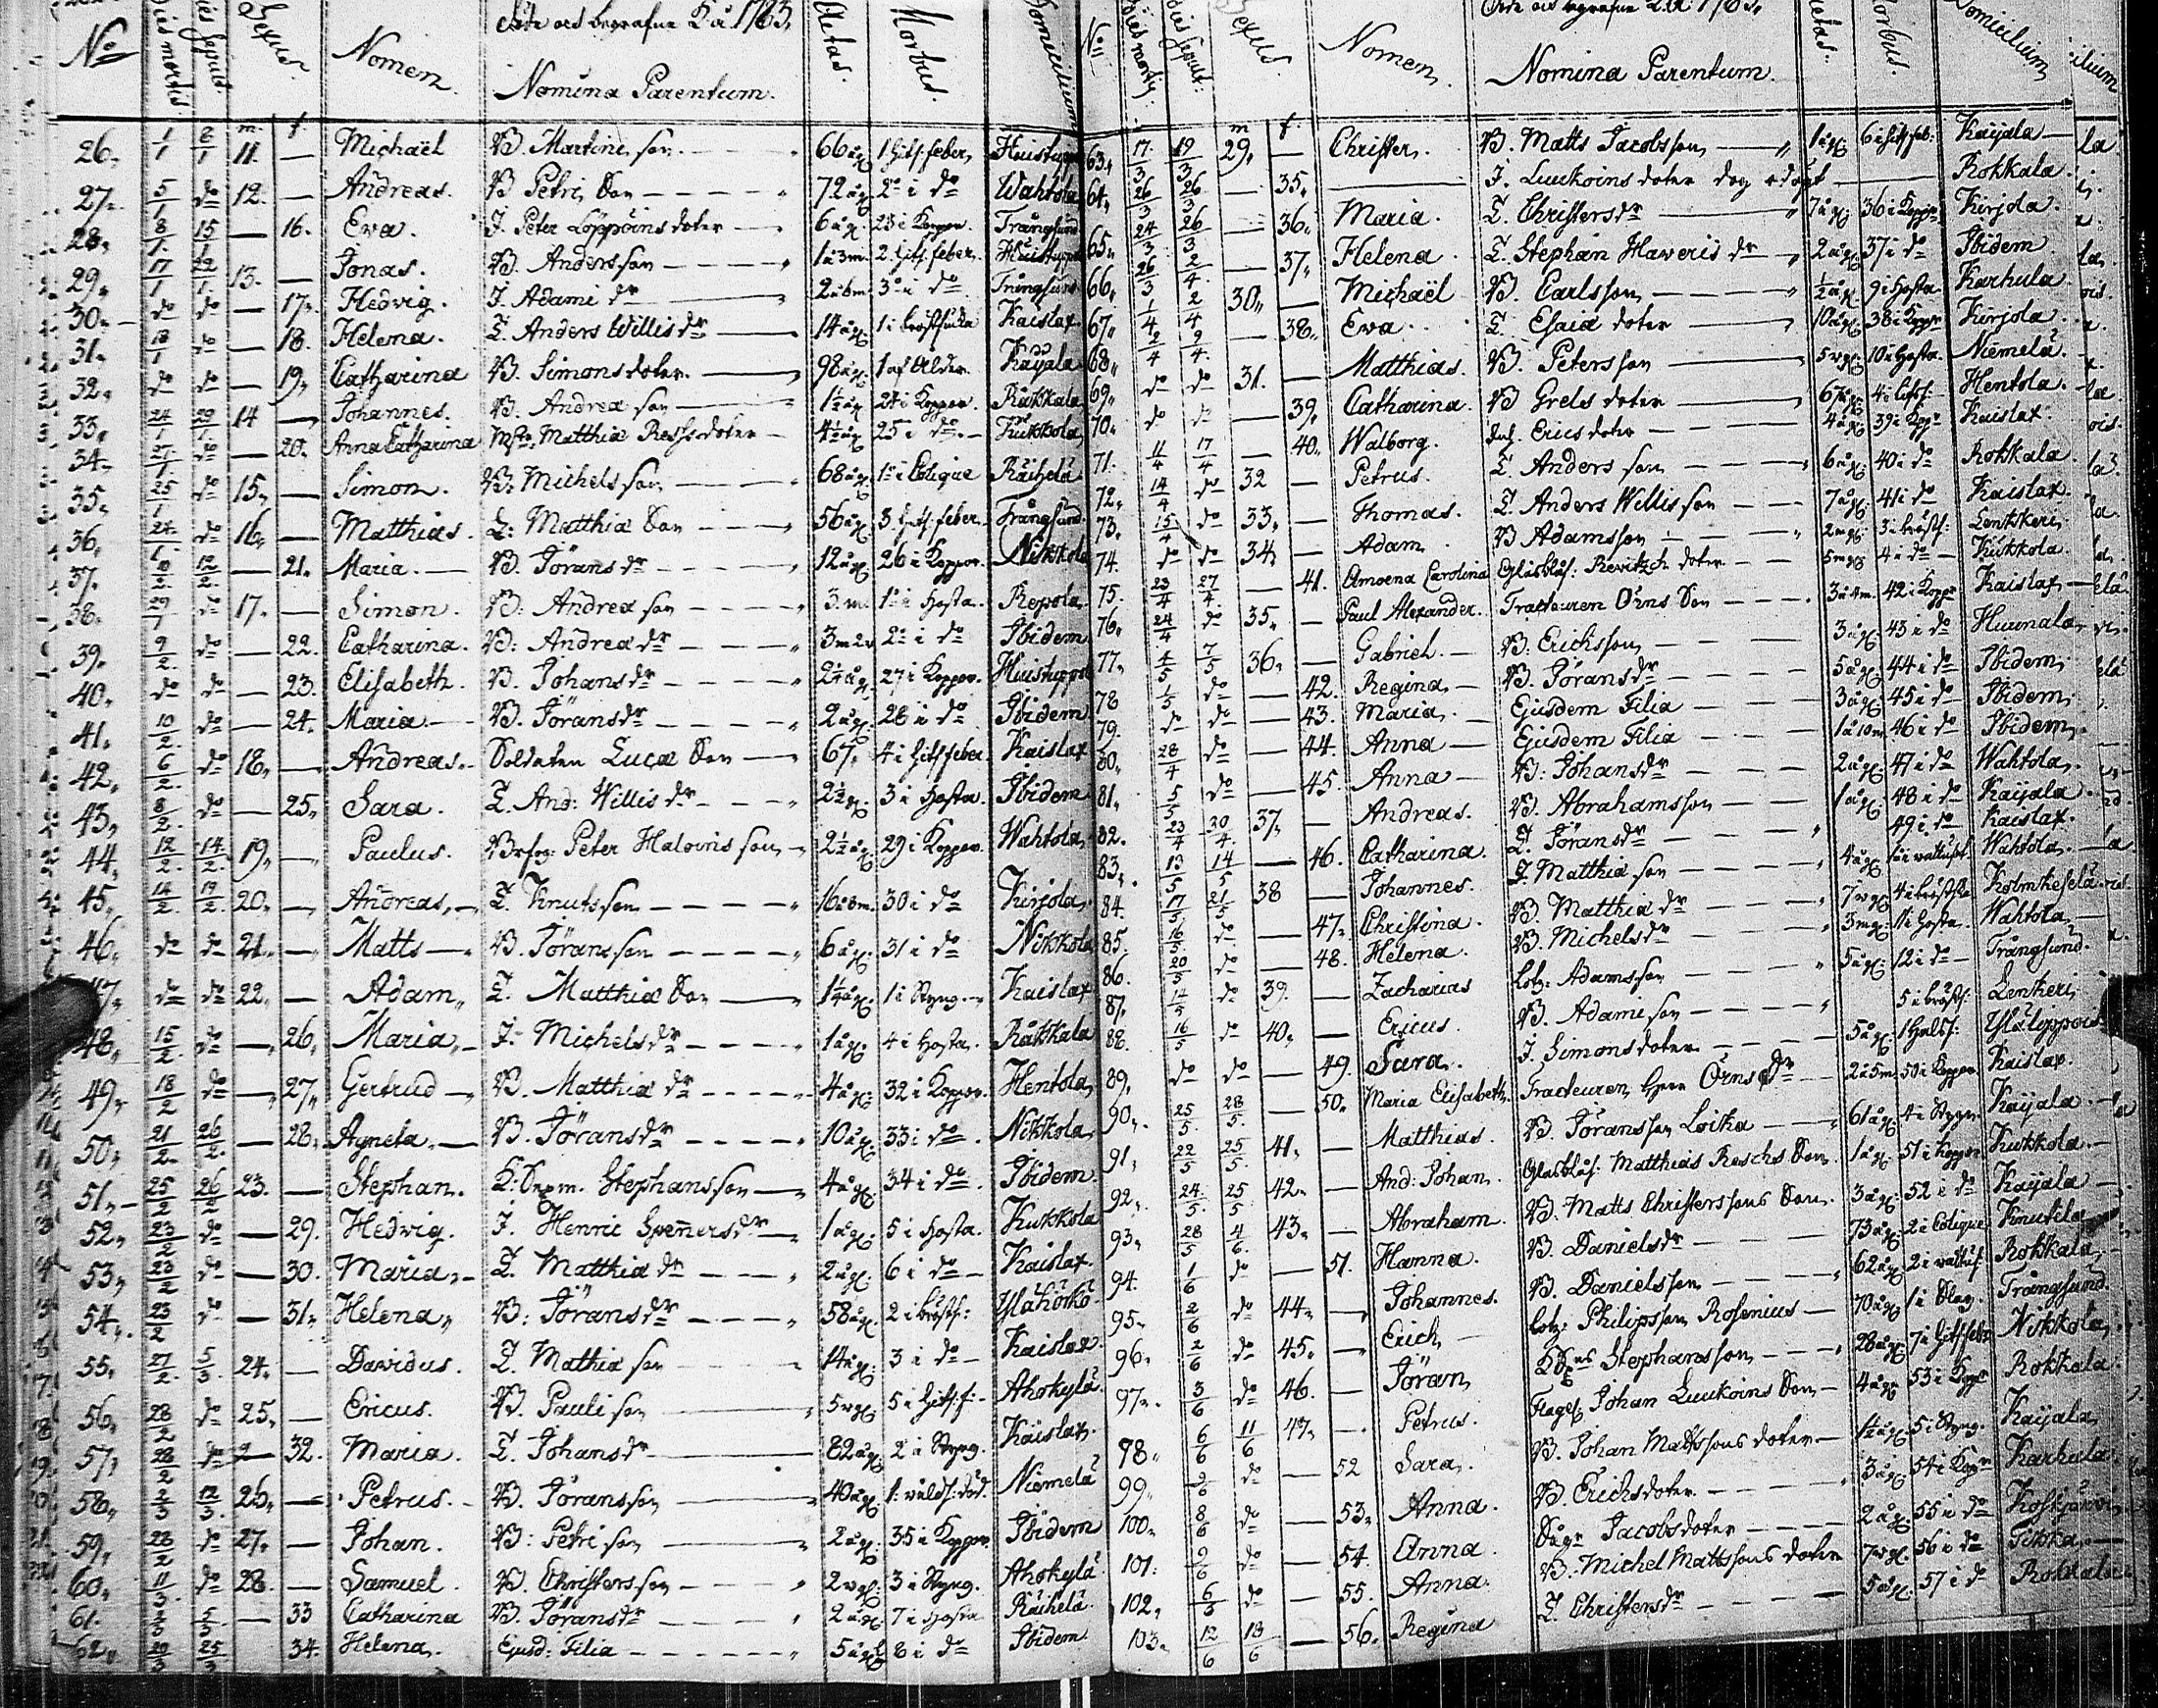 Döde och begrafne 1763.
No Dies mortis Dies Sepult. Sexus. Nomen. Nomina Parentum. Aetas. Morbus. Domicilium
m. f.
26. 1/1 6/1 11. — Michaël B. Martini son 66 åg. 1 Hits. feber Huistuppa
27. 5/1 do 12. — Andreas. B Petri Son 72 åg. 2 i do Wahtola
28. 8/1 15/1 — 16. Eva. I. Peter Löppöins doter 6 åg. 23 i Koppor. Trångsund
29. 17/1 22/1 13. — Jonas. B. Anders son 1å 3m. 2. Hits. feber.
30. do do — 17. Hedvig. I. Adami dr 2å 6m. 3 i do Trångsund
31. 18/1 do — 18. Helena. T. Anders Willis dr 14 åg. 1 i bröstsiuka Kaislax
32. do do — 19. Catharina B. Simons doter. 98 åg. 1 af Ålder Kaijala
33. 24/1 29/1 14 — Johannes. B. Andreæ son 1½ åg 24 i Koppor. Råkkala
34. 27/1 do — 20. Anna Catharina Matthiæ doter 4½ åg 25 i do. Kukkola
35. 25/1 do 15. — Simon. B. Michels son 68 åg. 1 i Colique Räihelä
36. 24/1 do 16. — Matthias. T. Matthiæ Son 56 åg. 3 Hits. feber. Trångsund
37. 12/2 — 21. Maria. B. Jörans dr 12 åg. 26 i Koppor. Nikkola
38. 29/1 do 17. — Simon. B. Andreæ son 3. m. 1 i Hosta. Repola
39. 9/2 do — 22. Catharina. B. Andreæ dr 3m 2v 2 i do Ibidem
40. do do — 23. Elisabeth. B. Johans dr 27 i Koppor. Huistuppa
41. 10/2 do — 24. Maria B. Jörans dr 2 åg. 28 i do Ibidem
42. 6/2 do 18. — Andreas. Soldaten Lucæ Son 67. 4 i Hitsfeber Kaislax
43. 8/2 do — 25. Sara. T. And: Willis dr 2½ åg. 3 i Hosta. Ibidem
44. 12/2 14/2 19. — Paulus. Peter Haloins son 2½ åg 29 i Koppor. Wahtola
45. 14/2 19/2 20. — Andreas. T. Knuts son 16å 8m. 30 i do Kirjola
46. do do 21. — Matts B. Jörans son 6 åg. 31 i do Nikkola
47. do do 22. — Adam T. Matthiæ Son 1¼ åg. 1 i Styng. Kaislax
48. 15/2 do — 26. Maria I. Michels dr 1 åg. 4 i Hosta. Råkkala
49. 18/2 do — 27. Gertrud B. Matthiæ dr 4 åg. 32 i Koppor. Hentola
50. 21/2 26/2 — 28. Agneta B. Jörans dr 10 åg. 33 i do. Nikkola
51. 25/2 26/2 23. — Stephan. Stephansson 4 åg. 34 i do Ibidem
52. 23/2 do — 29. Hedvig. I. Henric Speners dr 1 åg. 5 i Hosta. Kukkola
53. 23/2 do — 30. Maria T. Matthiæ dr 2 åg. 6 i do Kaislax
54. 23/2 do — 31. Helena B. Jörans dr 58 åg. 2 i bröstf:
55. 27/2 5/3 24. — Davidus. T. Mathiæ son 14 åg. 3 i do Kaislax
56. 28/2 do 25. — Ericus. B. Pauli son 5 v. g. 5 i Hits: f: Ahokylä
57. 28/2 do — 32. Maria. T. Johans dr 82 åg. 2 i Styng. Kaislax
58. 2/3 12/3 26. — Petrus. B. Jörans son 40 åg. 1. våldf: död. Niemelä
59. 28/2 do 27. — Johan. B. Petri son 2 åg. 35 i Koppor. Ibidem
60. 11/3 do 28. — Samuel. B. Christers son 2 v g. 3 i Styng. Ahokylä
61. 5/3 — 33 Catharina B. Jörans dr 2 åg. 7 i Hosta Räihelä
62. 20/3 25/3 34. Helena. Ejusd: Filia 5 åg 8 i do Ibidem
Döde och begrafne 1763.
No Dies mortis Dies sepult: Sexus. Nomen. Nomina Parentum. Aetas. Morbus. Domicilium
m f.
63. 17/3 19/3 29. — Christer. B. Matts Jacobsson 1 åg 6 i Hits. feb: Kaijala
64. 26/3 26/3 — 35. I. Luukoins doter dog odöpt Rokkala
65. 24/3 26/3 — 36. Maria. T. Christers dr 7 åg 36 i Koppor Kirjola
66. 26/3 2/4 — 37. Helena. T. Stephan Haveris dr 2 åg. 37 i do Ibidem
67. 1/4 2/4 30. — Michaël B. Carlsson ½ åg. 9 i Hosta Karhula
68. 2/4 9/4 — 38. Eva T. Esaiæ doter 10 åg. 38 i Koppor Kirjola
69. do do 31. — Matthias. B. Petersson 5 v g. 10 i Hosta. Niemelä
70. do do — 39. Catharina. B Grels doter 4 i Hits. f. Hentola
71. 11/4 17/4 — 40. Walborg. Erics doter 4 åg 39 i Kopp. Kaislax
72. 14/4 do 32 — Petrus. T. Anders son 6 åg. 40 i do Rokkala
73. 15/4 do 33. — Thomas. T. Anders Willis son 7 åg. 41 i do Kaislax
74. do do 34. — Adam B Adamsson 2 m g. 3 i bröstf: Lentkeri
75. 23/4 27/4 — 41. Amoena Carolina Glasblås: Revitzch doter 5 m g 4 i do Kukkola
76. 24/4 do 35. — Paul Alexander. Tracteuren Örns Son 3å 4m. 42 i Koppor Kaislax
77. 4/5 7/5 36. — Gabriel. B. Erichsson 3 åg. 43 i do Hurmala
78 1/5 do — 42. Regina B. Jörans dr 5 åg 44 i do Ibidem
79. do do — 43. Maria Ejusdem Filia 3 åg 45 i do Ibidem
80. 28/4 do — 44. Anna Ejusdem Filia 1å 10m 46 i do Ibidem
81. 5/5 do — 45. Anna B. Johans dr 2 åg. 47 i do Wahtola
82. 23/4 30/4 37. — Andreas. B. Abrahamsson 1 åg 48 i do Kaijala
83. 13/5 14/5 — 46. Catharina. T. Jörans dr 49 i do Kaislax
84. 17/5 21/5 38 — Johannes. T. Matthiæ son 4 åg Wahtola
85. 16/5 do — 47. Christina. B. Matthiæ dr 7 v g. Kolmikesälä
86. 20/5 do — 48. Helena. B. Michels dr 3 m g. 11 i Hosta. Wahtola
87. 14/5 do 39. — Zacharias Lots: Adamsson 5 åg. 12 i do Trångsund
88. 16/5 do 40. — Ericus. B. Adami son 5 i bröstf: Lentkeri
89. do do — 49. Sara. I. Simons doter 5 åg. 1 Halsf:
90. 25/5 28/5 — 50. Maria Elisabeth Tracteuren Herr Örns dr 2å 5m 50 i Koppor Kaislax
91. 22/5 25/5 41. — Matthias. B. Jöransson Loika 61 åg. 4 i Styng. Kaijala
92. 24/5 25/5 42. — And: Johan. Glasblås: Matthias Reschs Son 1 åg. 51 i Koppor Kukkola
93. 28/5 4/6 43. — Abraham. B. Matts Christerssons Son. 3 åg. 52 i do Kaijala
94. 1/6 do — 51. Hanna. B. Daniels dr 73 åg. 2 i Colique Knutila
95. 2/6 do 44. — Johannes. B. Danielsson 62 åg 2 i vattus. Rokkala
96. 2/6 do 45. — Erich Lots: Philipsson Rosenius 70 åg 1 i Slag. Trångsund
97. 3/6 do 46. — Jöran Stephansson 28 åg. 7 i Hits. feber Nikkola
98. 6/6 11/6 47. — Petrus. Johan Luukoins Son 4 åg 53 i Kopp. Rokkala
99. do — 52 Sara. B. Johan Mattssons doter 1½ åg. 5 i Styng. Kaijala
100. 8/6 do — 53. Anna. B. Erichs doter 3 åg. 54 i Kopp Karhula
101. 9/6 do — 54. Anna. Jacobs doter 2 åg. 55 i do Koskijärvi
102. 6/3 do — 55. Anna. B. Michel Mattssons doter 7 v g. 56 i do Tikka
103. 12/6 18/6 — 56. Regina T. Christers dr 5 åg. 57 i do Rokkala